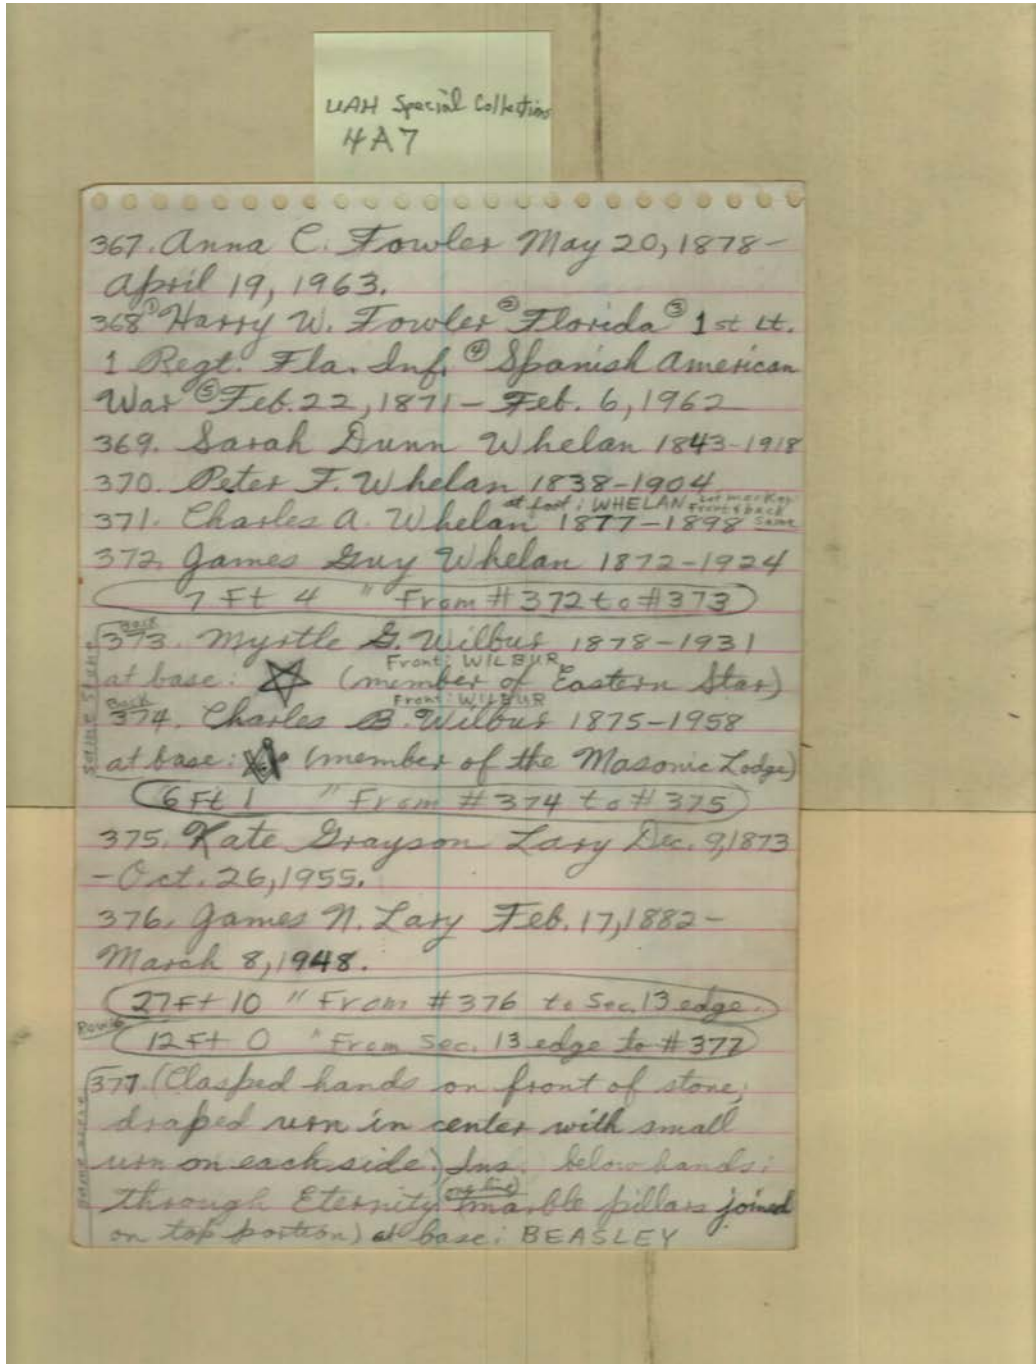 UAH Special Collections
4A7
367. Anna C. Fowler May 20, 1878-
April 19, 1963.
368 ① Harry W. Fowler ② Florida ③ 1st Lt.
1 Regt. Fla. Inf. ④ Spanish American
War ⑤ Feb. 22, 1871 - Feb. 6, 1962
369. Sarah Dunn Whelan 1843-1918
370. Peter F. Whelan 1838-1904
at foot: WHELAN Lot marker
Front & back
371. Charles A. Whelan 1877-1898 same
372. James Guy Whelan 1872-1924
7 Ft 4 " From #372 to #373
Back
373. Myrtle G. Wilbur 1878-1931
Front: WILBUR
at base: (member of Eastern Star)
Back Front: WILBUR
374. Charles B. Wilbur 1875-1958
same stone
at base: (member of the Masonic Lodge)
6 Ft 1 " From #374 to #375
375. Kate Grayson Lary Dec. 9, 1873
- Oct. 26, 1955.
376. James N. Lary Feb. 17, 1882-
March 8, 1948.
27 Ft 10 " From #376 to Sec. 13 edge.
12 Ft 0 " From Sec. 13 edge to #377
377 (Clasped hands on front of stone;
draped urn in center with small
urn on each side.) Ins. below hands:
through Eternity (one line) (marble pillars joined
on top portion) at base: BEASLEY